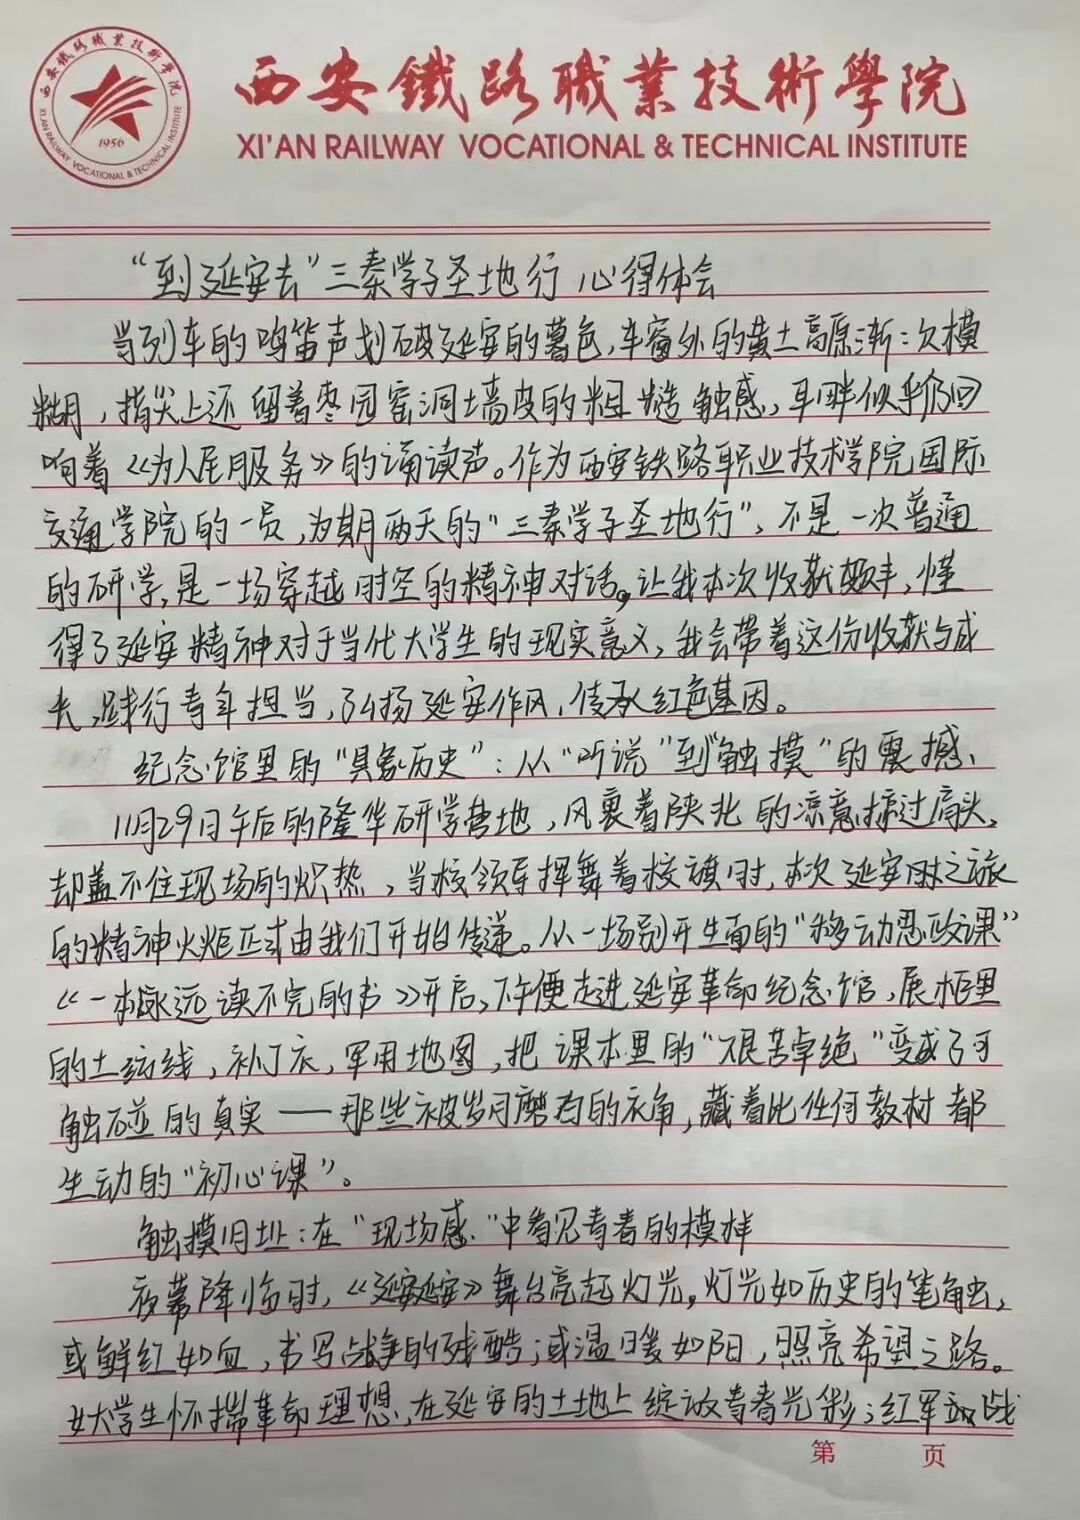 西安鐵路職業技術學院
XI'AN RAILWAY VOCATIONAL & TECHNICAL INSTITUTE
西安鐵路職業技術學院
XI'AN RAILWAY VOCATIONAL & TECHNICAL INSTITUTE
1956
“到延安去”三秦学子圣地行 心得体会
当列车的鸣笛声划破延安的暮色,车窗外的黄土高原渐:次模
糊,指尖上还留着枣园窑洞墙皮的粗糙触感,耳畔似乎仍回
响着《为人民服务》的诵读声。作为西安铁路职业技术学院国际
交通学院的一员,为期两天的“三秦学子圣地行”,不是一次普通
的研学,是一场穿越时空的精神对话。让我本次收获颇丰,懂
得了延安精神对于当代大学生的现实意义,我会带着这份收获与成
长,践行青年担当,弘扬延安作风,传承红色基因。
纪念馆里的“具象历史”:从“听说”到“触摸”的震撼、
11月29日午后的隆华研学营地,风裹着陕北的凉意掠过肩头,
却盖不住现场的炽热,当校领导挥舞着校旗时,本次延安时之旅
的精神火炬正式由我们开始传递。从一场别开生面的“移动思政课”
《一本永远读不完的书》开启,下午便走进延安革命纪念馆,展柜里
的土纺线,补丁衣,军用地图,把课本里的“艰苦卓绝”变成了可
触碰的真实——那些被岁月磨有的衣角,藏着比任何教材都
生动的“初心课”。
触摸旧址:在“现场感”中看见青春的模样
夜幕降临时,《延安延安》舞台亮起灯光,灯光如历史的笔触,
或鲜红如血,书写战争的残酷;或温暖如阳,照亮希望之路。
女大学生怀揣革命理想,在延安的土地上绽放青春光彩;红军战
第 页